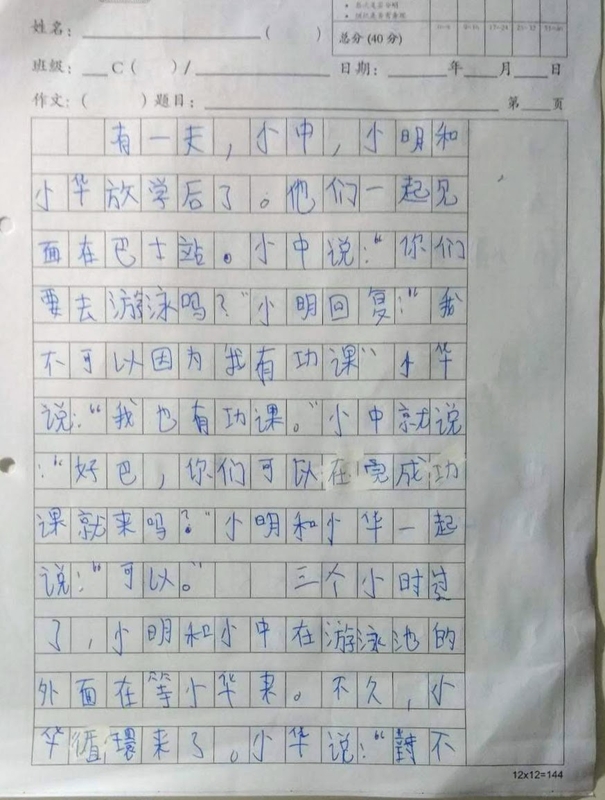 总分 (40 分)
姓名: ( )
班级: C ( ) / 日期: 年 月 日
作文: ( ) 题目: 第 页
有一天,小中,小明和
小华放学后了。他们一起见
面在巴士站。小中说:“你们
要去游泳吗?”小明回复:“我
不可以因为我有功课”小华
说:“我也有功课。”小中就说
:“好巴,你们可以在完成功
课就来吗?”小明和小华一起
说:“可以。” 三个小时过
了,小明和小中在游泳池的
外面在等小华来。不久,小
华循環来了。小华说:“對不
12x12=144